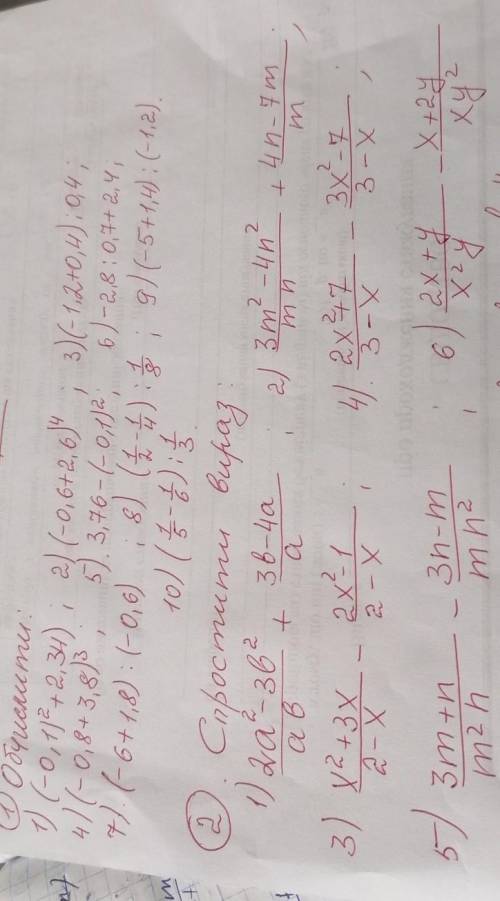 ① Обчислити:
1) (-0,1)²+2,34) ; 2) (-0,6+2,6)⁴ ; 3) (-1,2+0,4):0,4 ;
4) (-0,8+3,8)³ ; 5). 3,76-(-0,1)² ; 6) -2,8:0,7+2,4 ;
7). (-6+1,8):(-0,6) ; 8) (1/2 - 1/4):1/8 ; 9) (-5+1,4):(-1,2).
10) (1/5 - 1/6):1/3.
②. Спростити вираз:
1) (2a²-3b²)/(ab) + (3b-4a)/a ; 2) (3m²-4n²)/(mn) + (4n-7m)/m ;
3) (x²+3x)/(2-x) - (2x²-1)/(2-x) ; 4). (2x²+7)/(3-x) - (3x²-7)/(3-x) ;
5) (3m+n)/(m²n) - (3n-m)/(mn²) ; 6) (2x+y)/(x²y) - (x+2y)/(xy²)